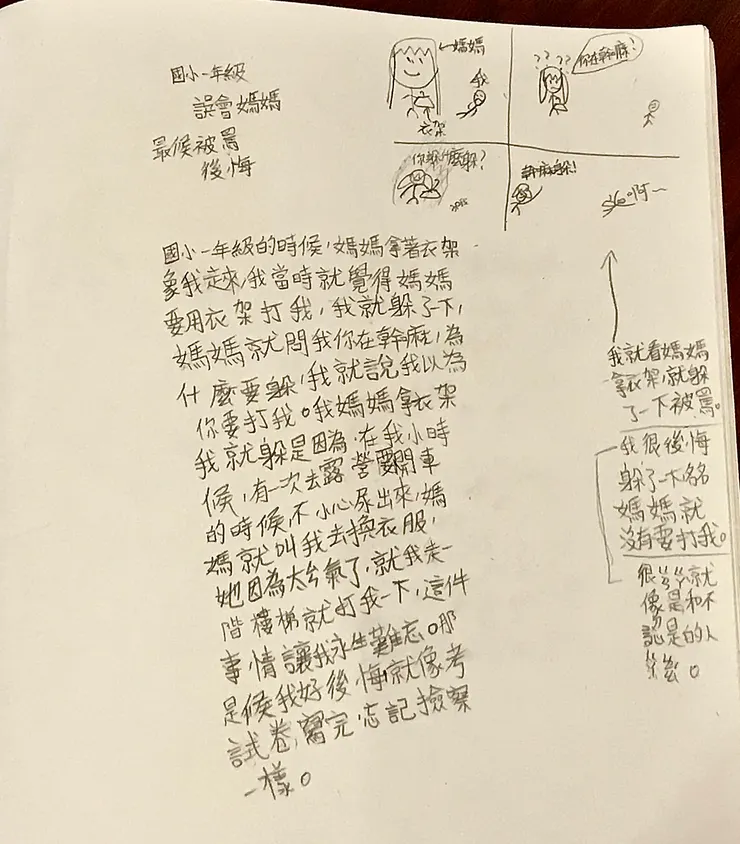 國小一年級
誤會媽媽
最候被罵
後悔
媽媽
我
衣架
??
??
你在幹麻!
你幹什麼躲?
幹麻躲!
啊~
國小一年級的時候,媽媽拿著衣架
象我走來,我當時就覺得媽媽
要用衣架打我,我就躲了下,
媽媽就問我你在幹麻,為
什麼要躲,我就說我以為
你要打我。我媽媽拿衣架
我就躲是因為,在我小時
候,有一次去露營要開車
的時候,不小心尿出來,媽
媽就叫我去換衣服,
她因為太生氣了,就我走一
階樓梯就打我一下,這件
事情讓我永生難忘。那
是候我好後悔,就像考
試卷,寫完,忘記撿察
一樣。
我就看媽媽
拿衣架,就躲
了一下被罵。
我很後悔
躲了一下,
媽媽就
沒有要打我。
就
像是和不
認是的人